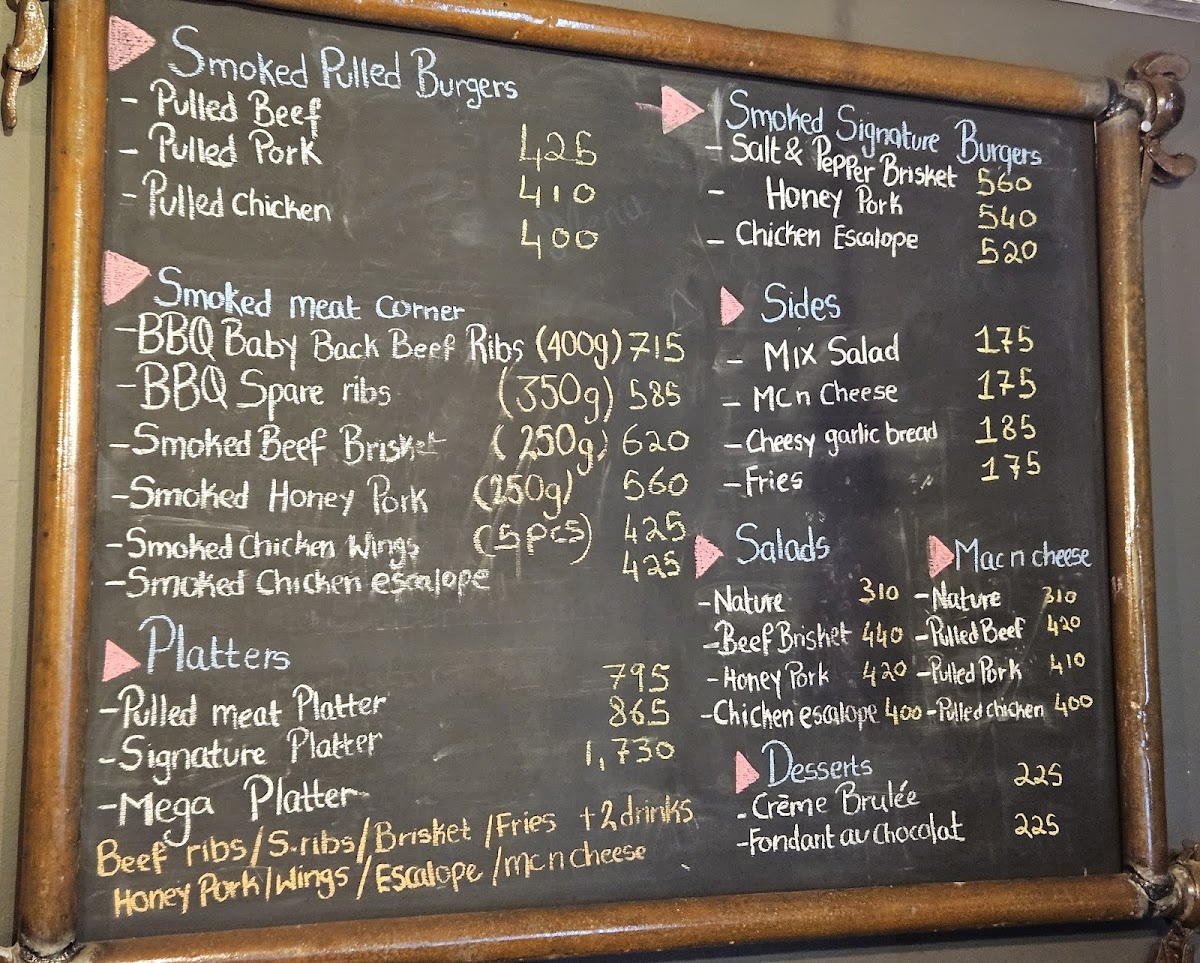 Smoked Pulled Burgers
- Pulled Beef 425
- Pulled Pork 410
- Pulled chicken 400
Smoked meat corner
- BBQ Baby Back Beef Ribs (400g) 715
- BBQ Spare ribs (350g) 585
- Smoked Beef Brisket (250g) 620
- Smoked Honey Pork (250g) 560
- Smoked Chicken Wings (5pcs) 425
- Smoked Chicken escalope 425
Platters
- Pulled meat Platter 795
- Signature Platter 865
- Mega Platter 1,730
Beef ribs/S.ribs/Brisket/Fries +2drinks
Honey Pork/Wings/Escalope/mc n cheese
Smoked Signature Burgers
- Salt & Pepper Brisket 560
- Honey Pork 540
- Chicken Escalope 520
Sides
- Mix Salad 175
- MC n Cheese 175
- Cheesy garlic bread 185
- Fries 175
Salads
- Nature 310
- Beef Brisket 440
- Honey Pork 420
- Chicken escalope 400
Mac n cheese
- Nature 310
- Pulled Beef 420
- Pulled Pork 410
- Pulled chicken 400
Desserts
- Crème Brulée 225
- Fondant au chocolat 225